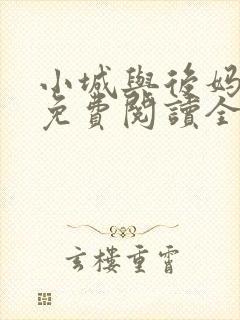 小城與後媽
免費閱讀全
玄樓重霄